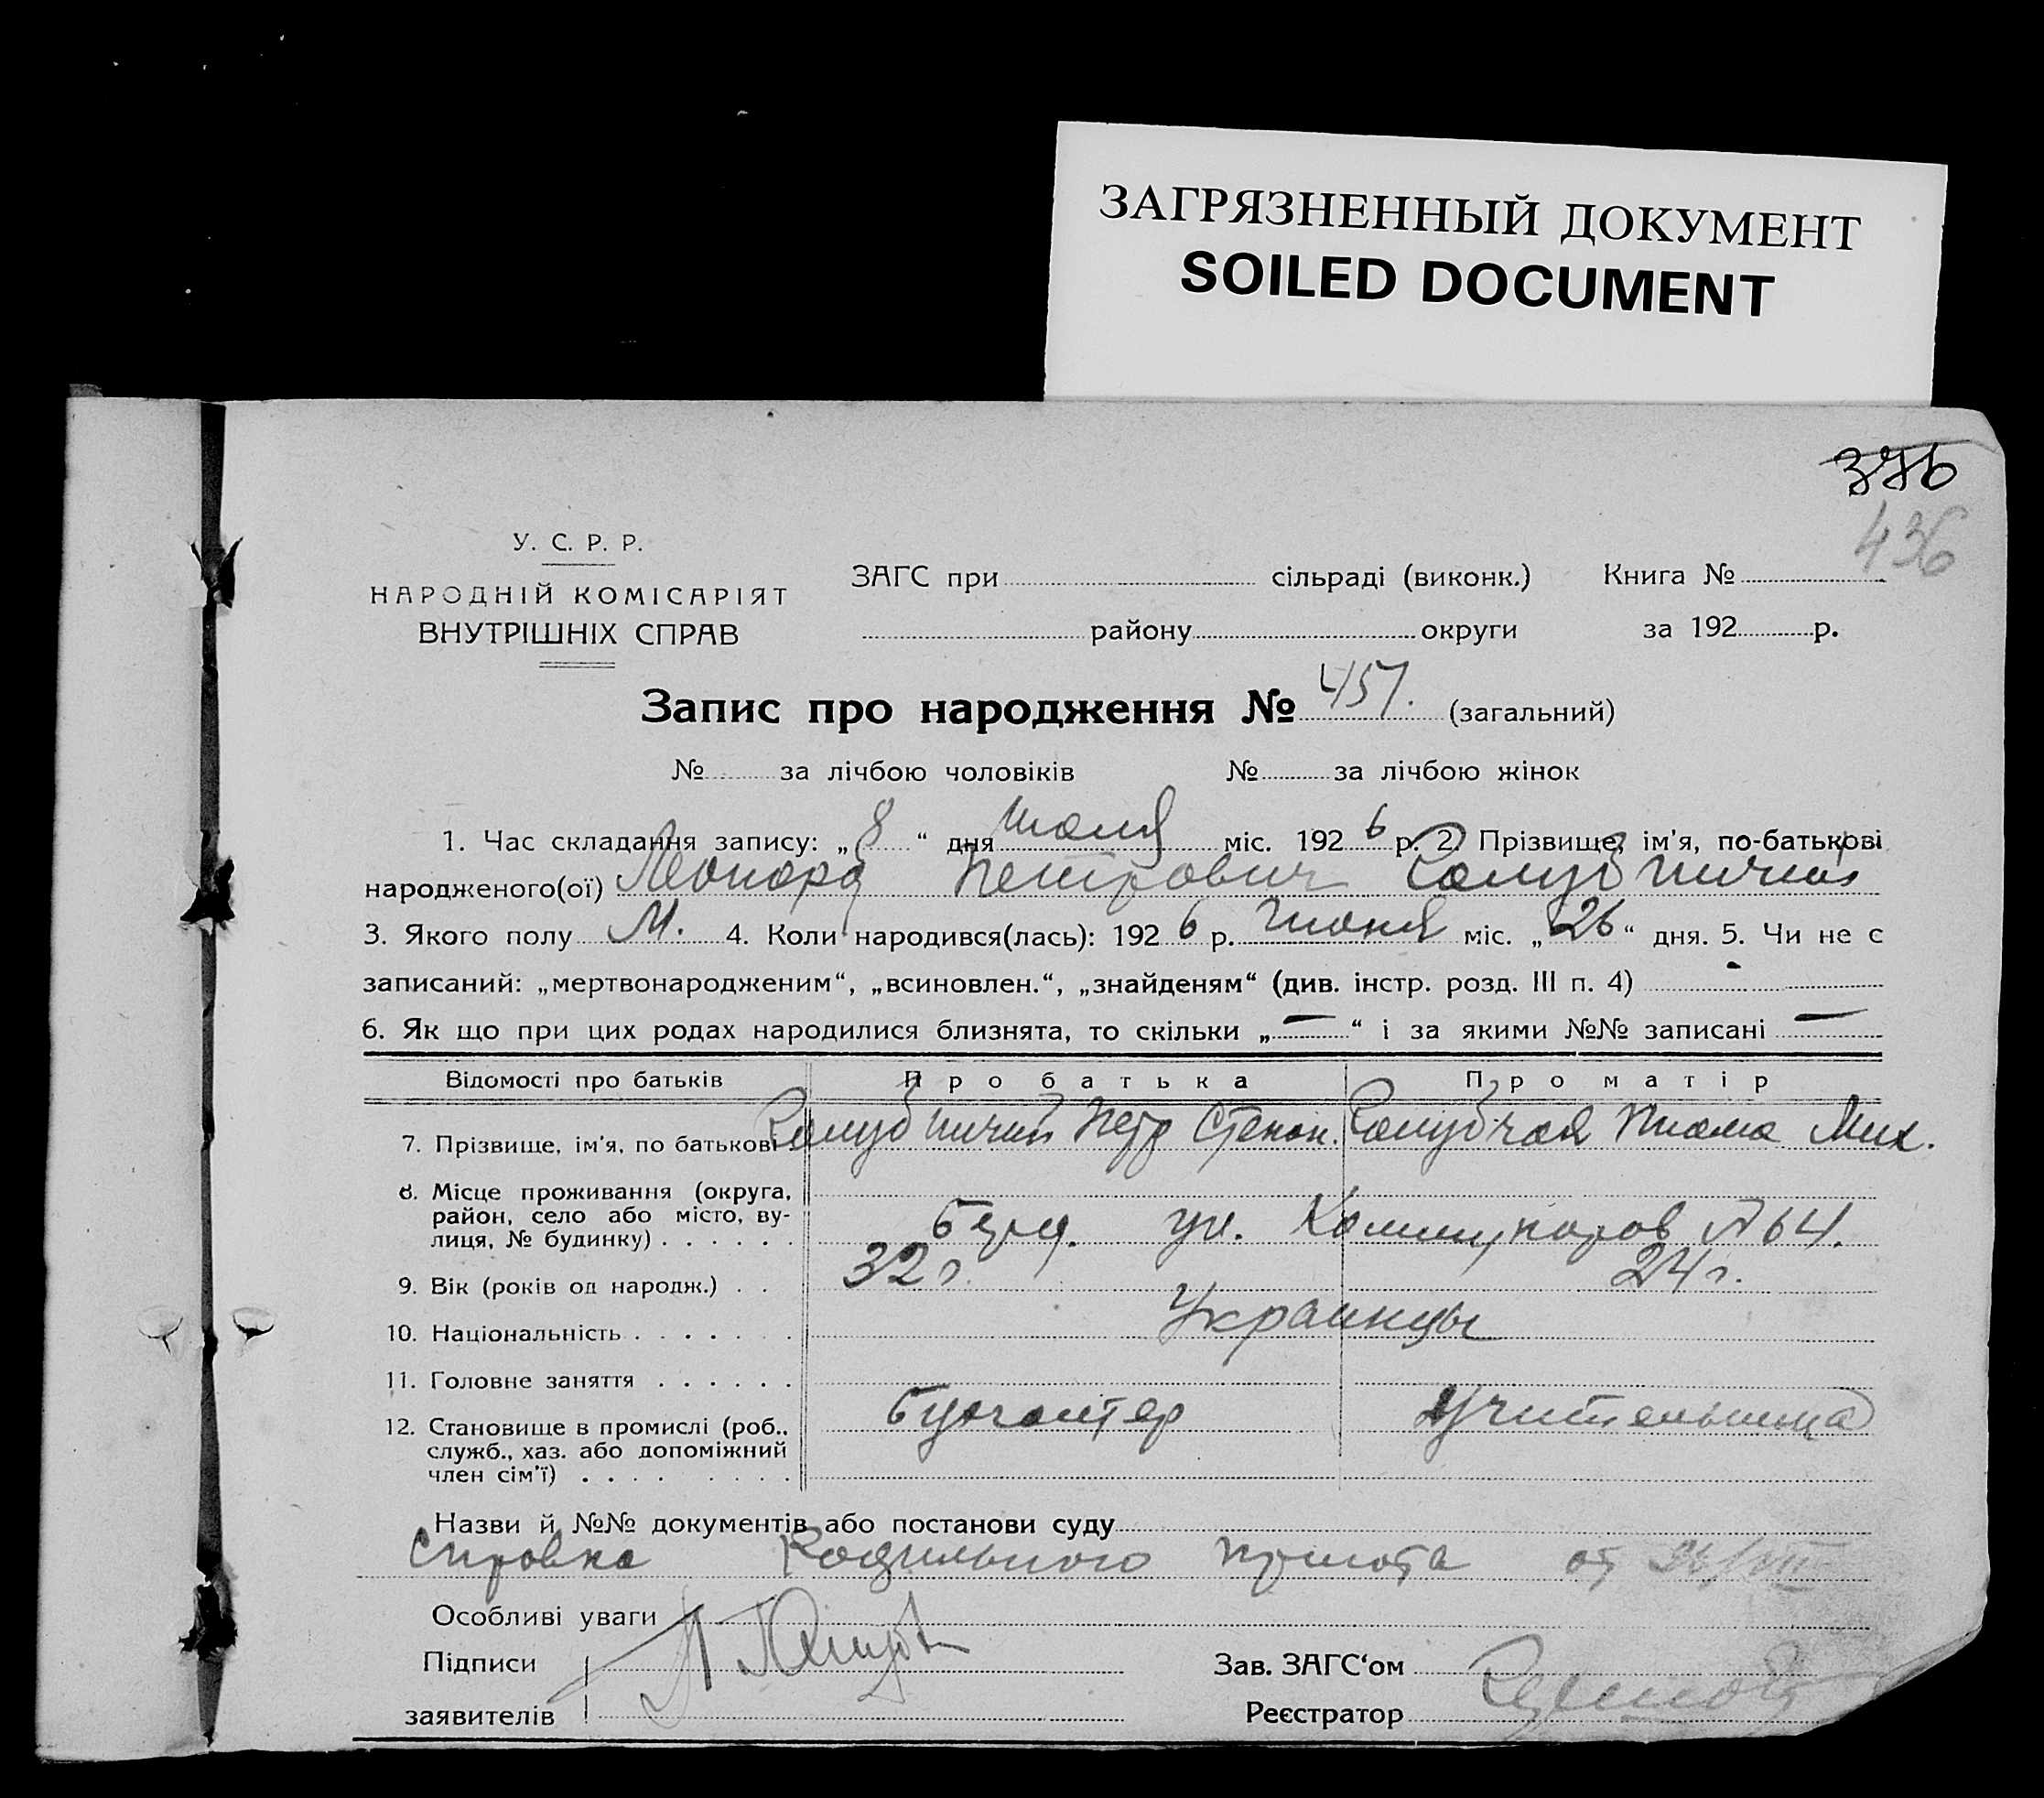 ЗАГРЯЗНЕННЫЙ ДОКУМЕНТ
SOILED DOCUMENT
376
436
У. С. Р. Р.
НАРОДНІЙ КОМІСАРІЯТ
ВНУТРІШНІХ СПРАВ
ЗАГС при сільраді (виконк.) Книга №
району округи за 192 р.
Запис про народження № 457. (загальний)
№ за лічбою чоловіків № за лічбою жінок
1. Час складання запису: „8“ дня Июля міс. 1926 р. 2. Прізвище, ім'я, по-батькові
народженого(ої) Леонард Петрович
3. Якого полу М. 4. Коли народився(лась): 1926 р. Июня міс. „26“ дня. 5. Чи не є
записаний: „мертвонародженим“, „всиновлен.“, „знайденям“ (див. інстр. розд. III п. 4)
6. Як що при цих родах народилися близнята, то скільки „—“ і за якими №№ записані —
Відомості про батьків Про батька Про матір
7. Прізвище, ім'я, по батькові Петр Степан. Мих.
8. Місце проживання (округа,
район, село або місто, ву-
лиця, № будинку) ул. Коммунаров № 64.
9. Вік (років од народж.) 32 г. 24 г.
10. Національність Украинцы
11. Головне заняття
12. Становище в промислі (роб., Бухгалтер Учительница
служб., хаз. або допоміжний
член сім'ї)
Назви й №№ документів або постанови суду
Справка Родильного приюта от
Особливі уваги
Підписи Зав. ЗАГС'ом
заявителів Реєстратор